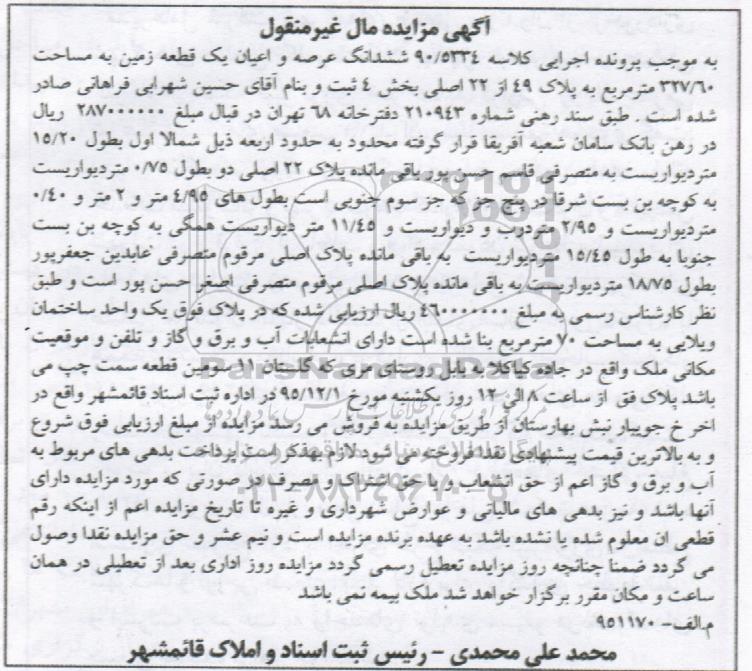 آگهی مزایده مال غیرمنقول
به موجب پرونده اجرایی کلاسه ۹۰/۵۳۳۴ ششدانگ عرصه و اعیان یک قطعه زمین به مساحت
۳۲۷/۶۰ مترمربع به پلاک ۴۹ از ۲۲ اصلی بخش ۴ ثبت و بنام آقای حسین شهرابی فراهانی صادر
شده است . طبق سند رهنی شماره ۲۱۰۹۴۳ دفترخانه ۶۸ تهران در قبال مبلغ ۲۸۷۰۰۰۰۰۰ ریال
در رهن بانک سامان شعبه آفریقا قرار گرفته محدود به حدود اربعه ذیل شمالا اول بطول ۱۵/۲۰
متردیواریست به متصرفی قاسم حسن پور باقی مانده پلاک ۲۲ اصلی دو بطول ۰/۷۵ متردیواریست
به کوچه بن بست شرقا در پنج جز که جز سوم جنوبی است بطول های ۴/۹۵ متر و ۲ متر و ۰/۴۰
متردیواریست و ۲/۹۵ متردرب و دیواریست و ۱۱/۴۵ متر دیواریست همگی به کوچه بن بست
جنوبا به طول ۱۵/۴۵ متردیواریست به باقی مانده پلاک اصلی مرقوم متصرفی عابدین جعفرپور
بطول ۱۸/۷۵ متردیواریست به باقی مانده پلاک اصلی مرقوم متصرفی اصغر حسن پور است و طبق
نظر کارشناس رسمی به مبلغ ۴۶۰۰۰۰۰۰۰ ریال ارزیابی شده که در پلاک فوق یک واحد ساختمان
ویلایی به مساحت ۷۰ مترمربع بنا شده است دارای انشعابات آب و برق و گاز و تلفن و موقعیت
مکانی ملک واقع در جاده کیاکلا به بابل روستای مری که گلستان ۱۱ سومین قطعه سمت چپ می
باشد پلاک فق از ساعت ۸ الی ۱۲ روز یکشنبه مورخ ۹۵/۱۲/۱ در اداره ثبت اسناد قائمشهر واقع در
اخر خ جویبار نبش بهارستان از طریق مزایده به فروش می رسد مزایده از مبلغ ارزیابی فوق شروع
و به بالاترین قیمت پیشنهادی نقدا فروخته می شود لازم بهذکر است پرداخت بدهی های مربوط به
آب و برق و گاز اعم از حق انشعاب و یا حق اشتراک و مصرف در صورتی که مورد مزایده دارای
آنها باشد و نیز بدهی های مالیاتی و عوارض شهرداری و غیره تا تاریخ مزایده اعم از اینکه رقم
قطعی ان معلوم شده یا نشده باشد به عهده برنده مزایده است و نیم عشر و حق مزایده نقدا وصول
می گردد ضمنا چنانچه روز مزایده تعطیل رسمی گردد مزایده روز اداری بعد از تعطیلی در همان
ساعت و مکان مقرر برگزار خواهد شد ملک بیمه نمی باشد
م.الف- ۹۵۱۱۷۰
محمد علی محمدی - رئیس ثبت اسناد و املاک قائمشهر
ParsNamadData
۰۲۱-۸۸۳۴۹۶۷۰-۵